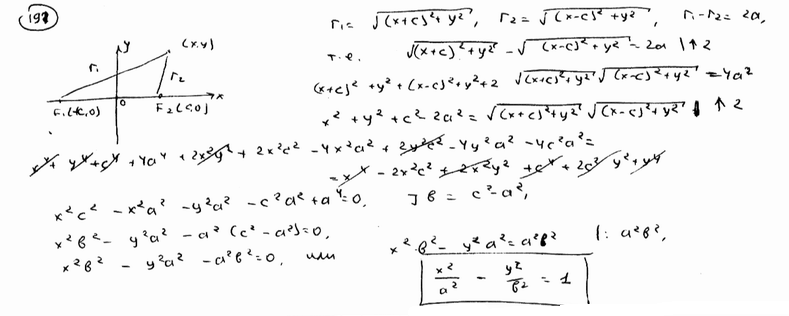 197
y
(x,y)
r₁
r₂
F₁(-c,0)
0
F₂(c,0)
x
r₁ = √((x+c)²+y²), r₂ = √((x-c)²+y²), r₁-r₂ = 2a,
т.е. √((x+c)²+y²) - √((x-c)²+y²) = 2a |↑2
(x+c)² + y² + (x-c)² + y² + 2 √((x+c)²+y²) √((x-c)²+y²) = 4a²
x² + y² + c² - 2a² = √((x+c)²+y²) √((x-c)²+y²) | ↑2
x⁴ + y⁴ + c⁴ + 4a⁴ + 2x²y² + 2x²c² - 4x²a² + 2y²c² - 4y²a² - 4c²a² =
= x⁴ - 2x²c² + 2x²y² + c⁴ + 2c² y² + y⁴
x²c² - x²a² - y²a² - c²a² + a⁴ = 0, ] в = c² - a²,
x²в² - y²a² - a²(c² - a²) = 0,
x²в² - y²a² - a²в² = 0, или
x²·в² - y²a² = a²в² |: a²в²,
x²/a² - y²/в² = 1